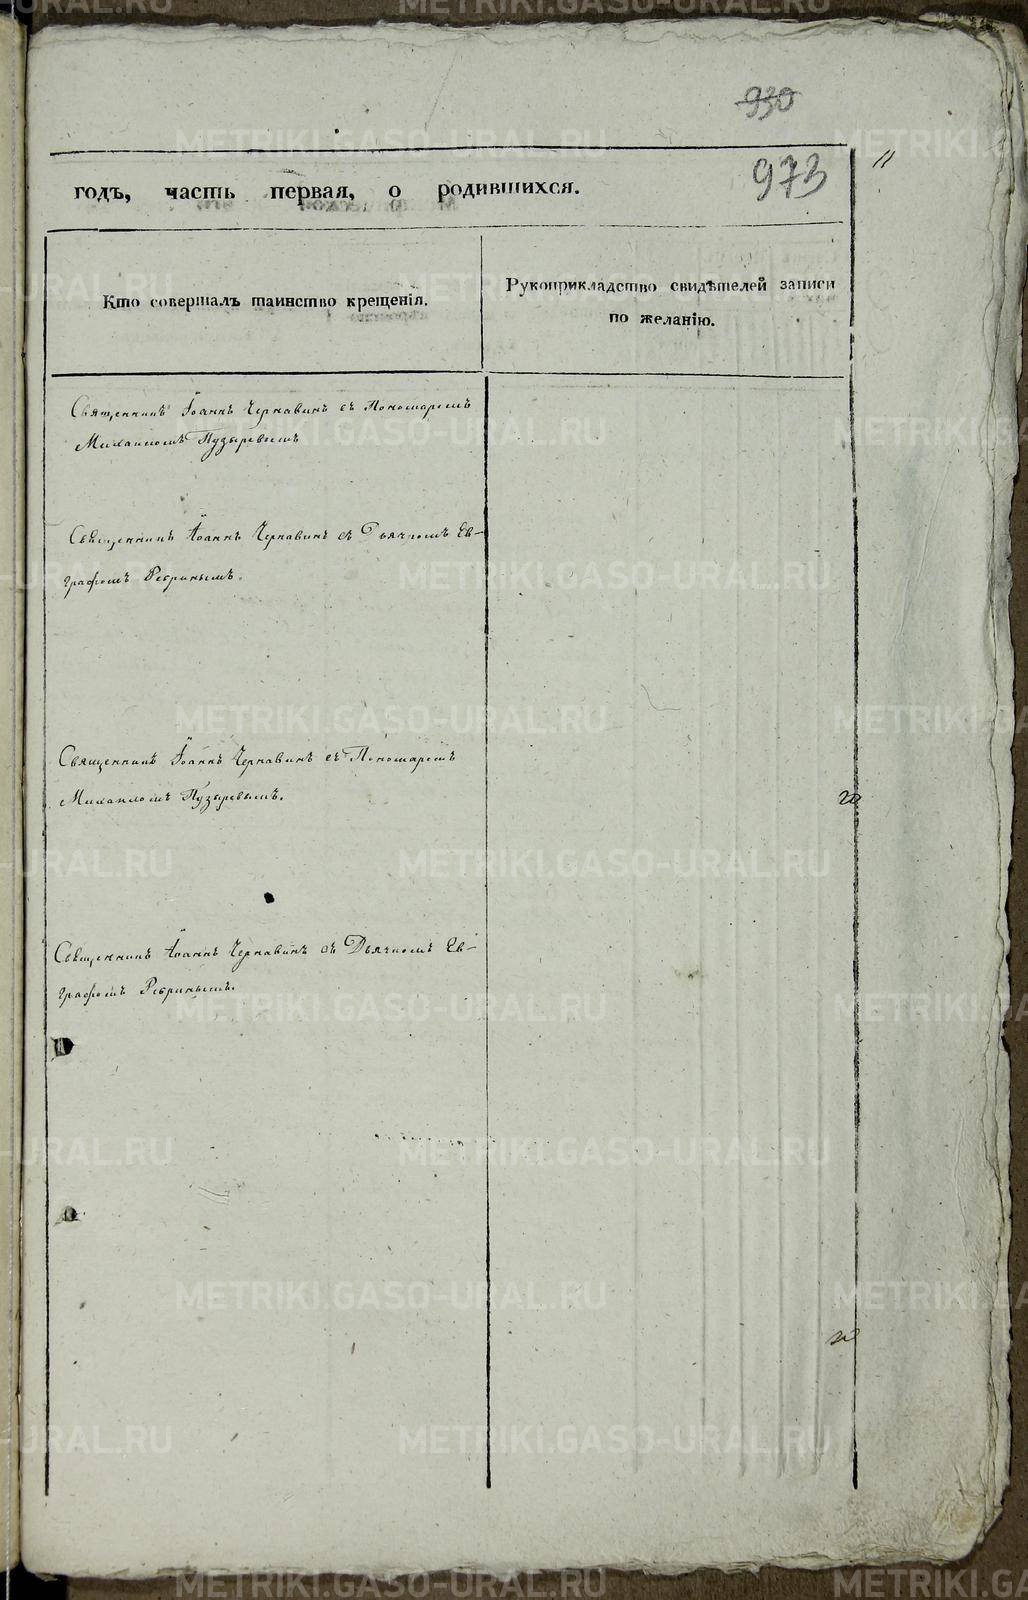 930
973
11
годъ, часть первая, о родившихся.
Кто совершалъ таинство крещенія.
Рукоприкладство свидѣтелей записи
по желанію.
Священникъ Іоаннъ Чернавинъ съ Пономаремъ
Михаиломъ Пузыревымъ
Священникъ Іоаннъ Чернавинъ съ Дьячкомъ Ев-
графомъ Ребринымъ.
Священникъ Іоаннъ Чернавинъ съ Пономаремъ
Михаиломъ Пузыревымъ.
Священникъ Іоаннъ Чернавинъ съ Дьячкомъ Ев-
графомъ Ребринымъ.
METRIKI.GASO-URAL.RU